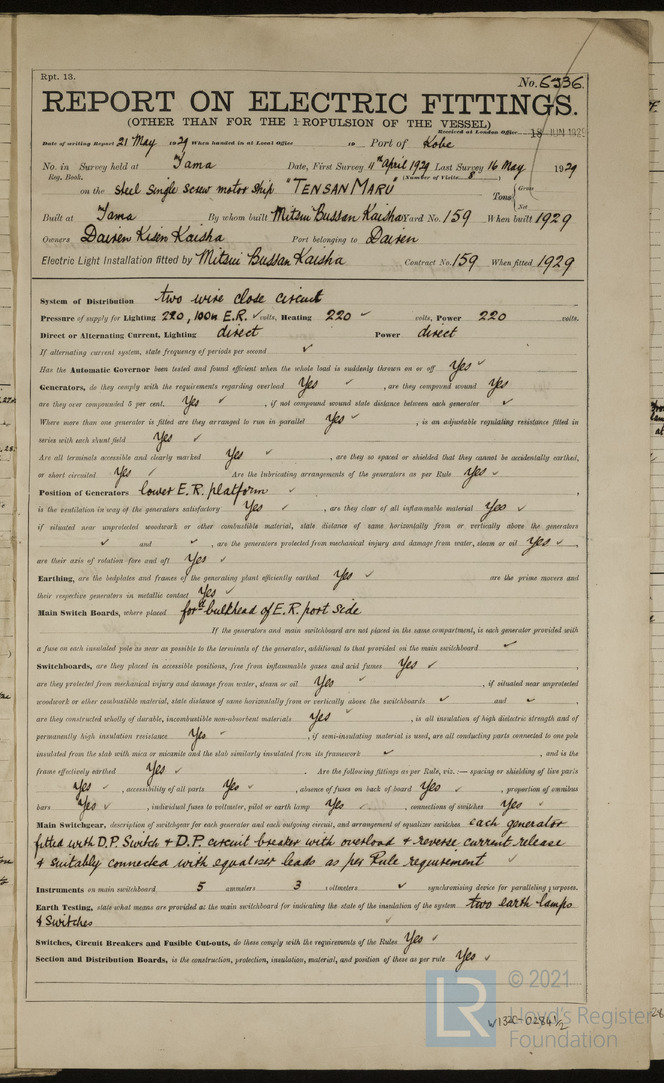 Rpt. 13.
No. 6536.
REPORT ON ELECTRIC FITTINGS.
(OTHER THAN FOR THE PROPULSION OF THE VESSEL)
Received at London Office 18 JUN 1929
Date of writing Report 21 May 1929 When handed in at Local Office 19 Port of Kobe
No. in Survey held at Tama Date, First Survey 4th April 1929 Last Survey 16 May 1929
Reg. Book. (Number of Visits 8)
on the steel single screw motor ship "TENSAN MARU" Tons { Gross
Net
Built at Tama By whom built Mitsui Bussan Kaisha Yard No. 159 When built 1929
Owners Dairen Kisen Kaisha Port belonging to Dairen
Electric Light Installation fitted by Mitsui Bussan Kaisha Contract No. 159 When fitted 1929
System of Distribution two wire close circuit
Pressure of supply for Lighting 220, 100 in E.R. ✓ volts, Heating 220 ✓ volts, Power 220 volts.
Direct or Alternating Current, Lighting direct Power direct
If alternating current system, state frequency of periods per second ✓
Has the Automatic Governor been tested and found efficient when the whole load is suddenly thrown on or off Yes ✓
Generators, do they comply with the requirements regarding overload Yes ✓, are they compound wound Yes
are they over compounded 5 per cent. Yes ✓, if not compound wound state distance between each generator ✓
Where more than one generator is fitted are they arranged to run in parallel Yes ✓, is an adjustable regulating resistance fitted in
series with each shunt field Yes ✓
Are all terminals accessible and clearly marked Yes ✓, are they so spaced or shielded that they cannot be accidentally earthed,
or short circuited Yes ✓ Are the lubricating arrangements of the generators as per Rule Yes ✓
Position of Generators lower E.R. platform ✓
is the ventilation in way of the generators satisfactory Yes ✓, are they clear of all inflammable material Yes ✓
if situated near unprotected woodwork or other combustible material, state distance of same horizontally from or vertically above the generators
✓ and ✓, are the generators protected from mechanical injury and damage from water, steam or oil Yes ✓,
are their axis of rotation fore and aft Yes ✓
Earthing, are the bedplates and frames of the generating plant efficiently earthed Yes ✓ are the prime movers and
their respective generators in metallic contact Yes ✓
Main Switch Boards, where placed ford bulkhead of E.R. port side
If the generators and main switchboard are not placed in the same compartment, is each generator provided with
a fuse on each insulated pole as near as possible to the terminals of the generator, additional to that provided on the main switchboard ✓
Switchboards, are they placed in accessible positions, free from inflammable gases and acid fumes Yes ✓,
are they protected from mechanical injury and damage from water, steam or oil Yes ✓, if situated near unprotected
woodwork or other combustible material, state distance of same horizontally from or vertically above the switchboards ✓ and ✓,
are they constructed wholly of durable, incombustible non-absorbent materials Yes ✓, is all insulation of high dielectric strength and of
permanently high insulation resistance Yes ✓, if semi-insulating material is used, are all conducting parts connected to one pole
insulated from the slab with mica or micanite and the slab similarly insulated from its framework ✓, and is the
frame effectively earthed Yes ✓. Are the following fittings as per Rule, viz. :— spacing or shielding of live parts
Yes ✓, accessibility of all parts Yes ✓, absence of fuses on back of board Yes ✓, proportion of omnibus
bars Yes ✓, individual fuses to voltmeter, pilot or earth lamp Yes ✓, connections of switches Yes ✓
Main Switchgear, description of switchgear for each generator and each outgoing circuit, and arrangement of equalizer switches each generator
fitted with D.P. Switch & D.P. circuit breaker with overload & reverse current release
& suitably connected with equalizer leads as per Rule requirement ✓
Instruments on main switchboard 5 ammeters 3 voltmeters ✓ synchronising device for paralleling purposes.
Earth Testing, state what means are provided at the main switchboard for indicating the state of the insulation of the system two earth lamps
& Switches ✓
Switches, Circuit Breakers and Fusible Cut-outs, do these comply with the requirements of the Rules Yes ✓
Section and Distribution Boards, is the construction, protection, insulation, material, and position of these as per rule Yes ✓
© 2021
LR Lloyd's Register
Foundation
W1320-0284 1/2